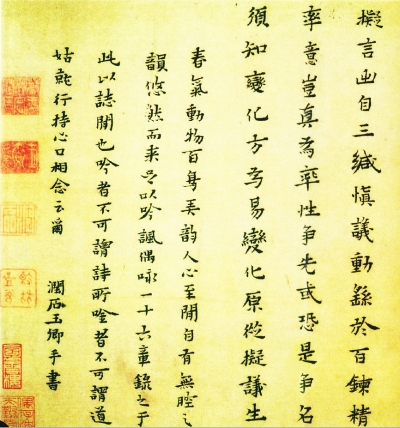 擬言出自三緘慎議動繇於百鍊精
率意豈真為率性爭先或恐是爭名
須知變化方為易變化原從擬議生
春氣動物百鳥弄韵人心至閒自有無腔之
韻悠然而来足以吟諷偶咏一十六章錄之于
此以誌閒也吟者不可謂詩所唫者不可謂道
姑就行持心口相念云爾
潤石玉卿手書